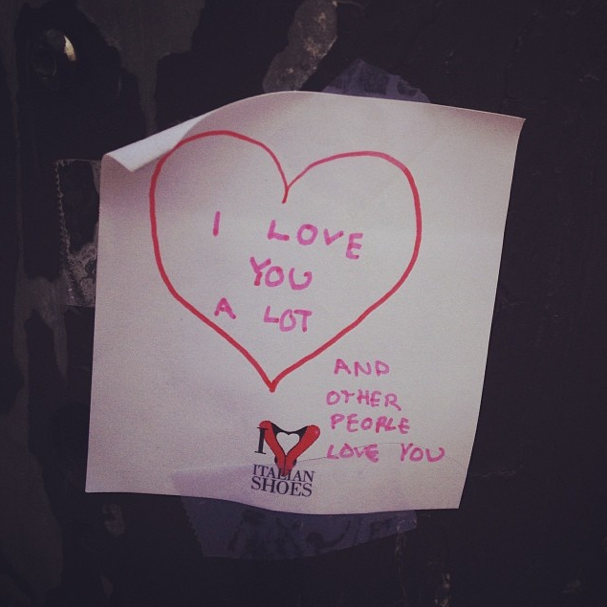 I LOVE
YOU
A LOT
AND
OTHER
PEOPLE
LOVE YOU
I
ITALIAN
SHOES